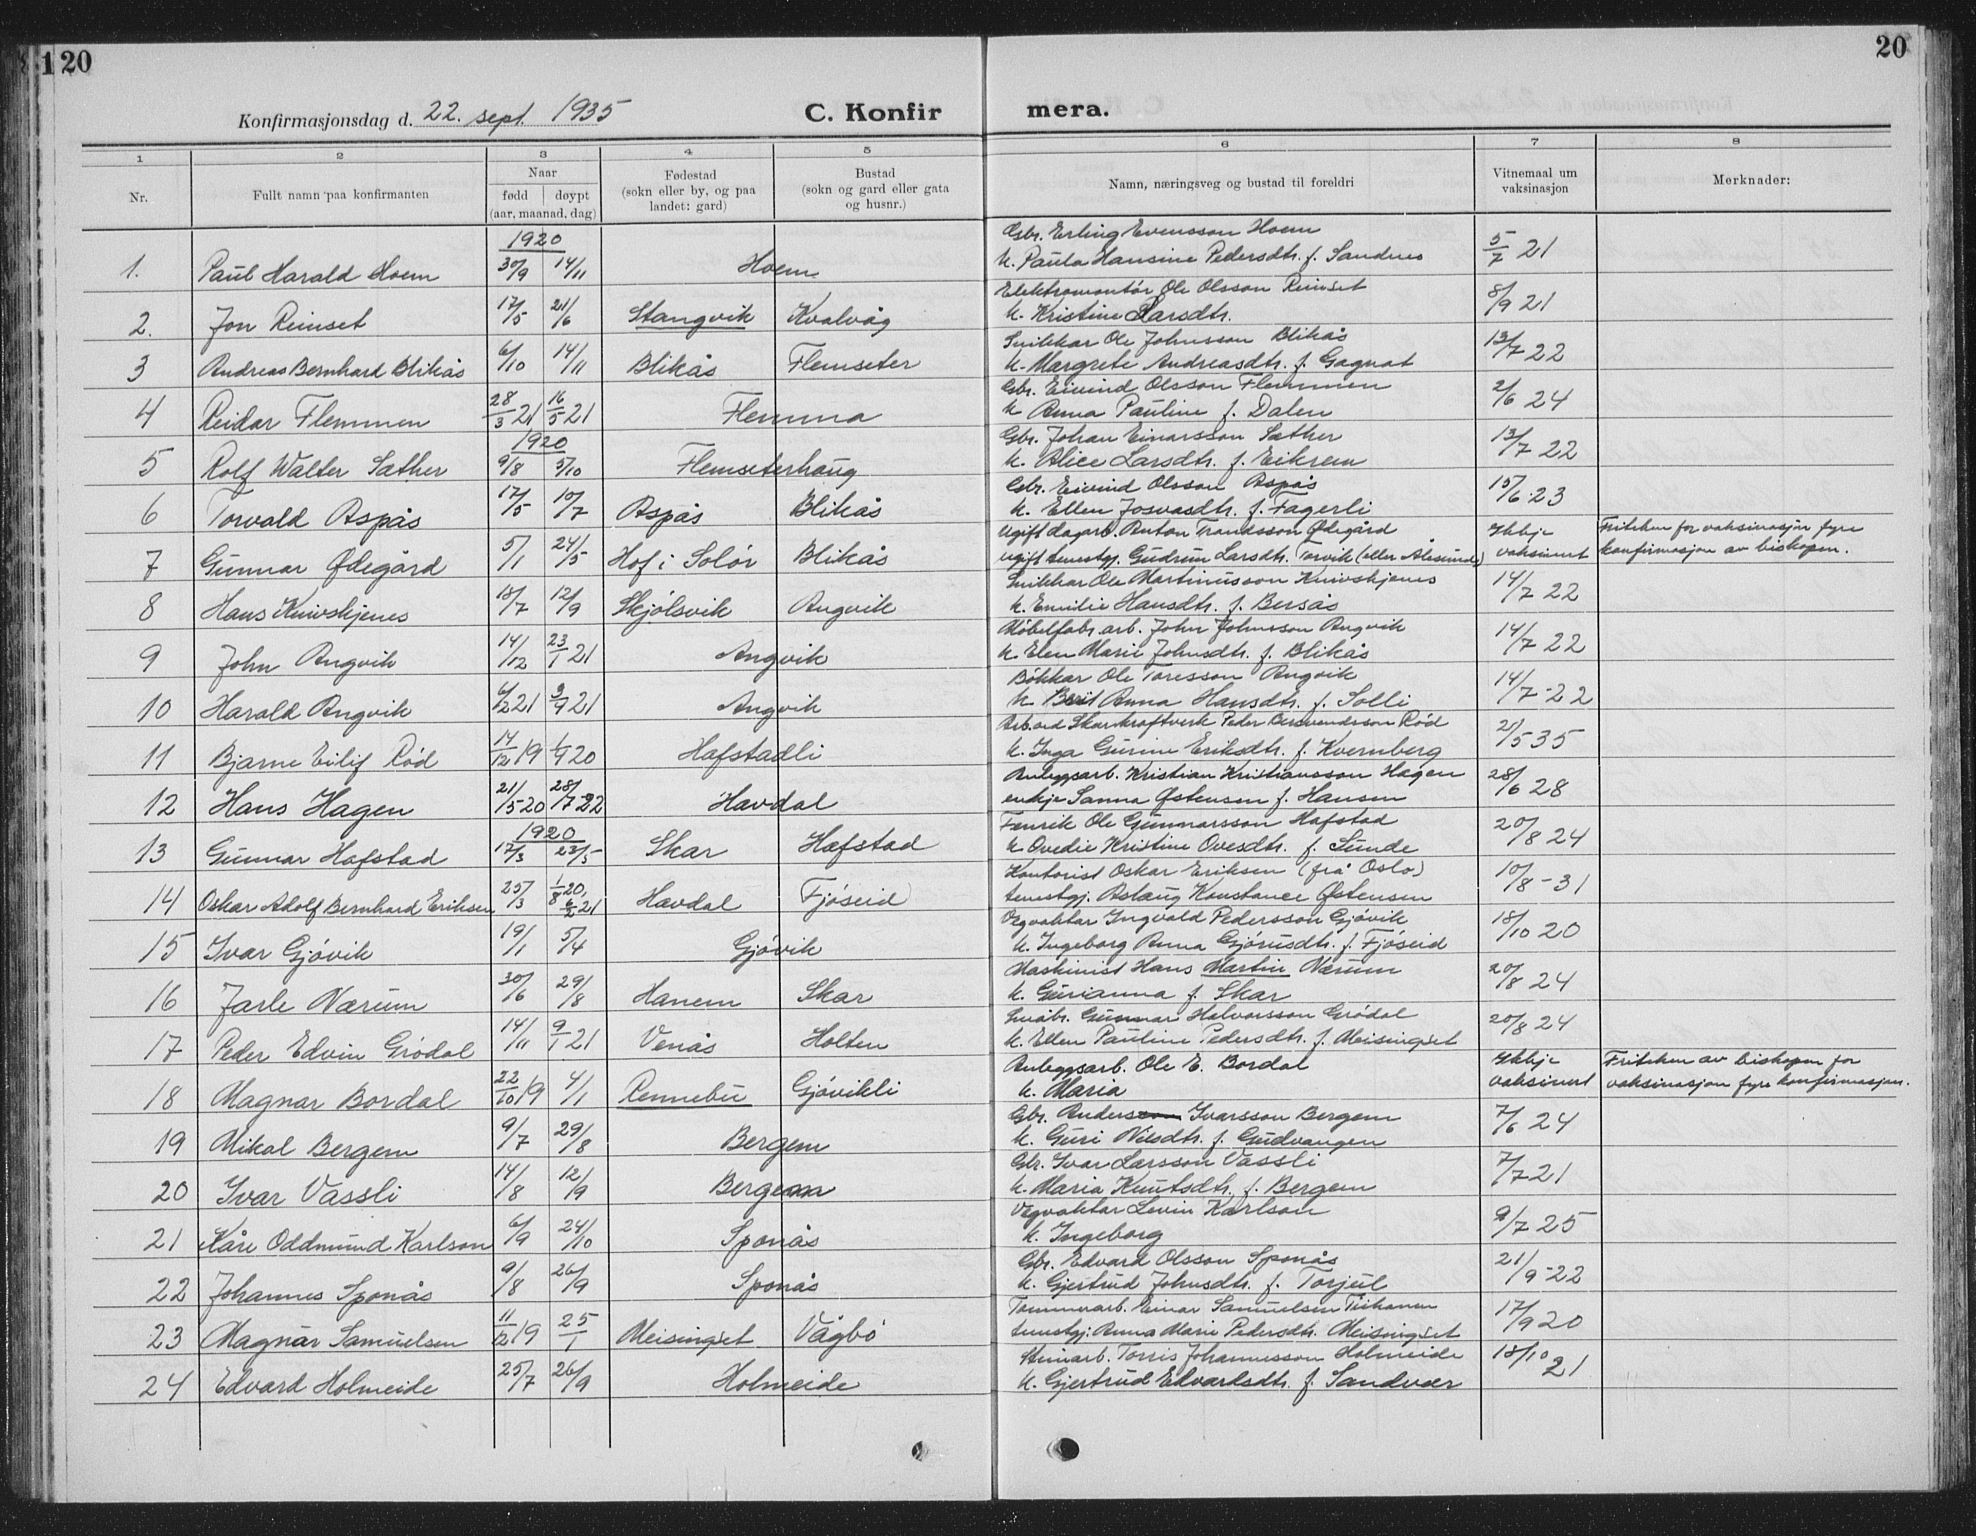 120
20
Konfirmasjonsdag d. 22. sept. 1935
C. Konfir mera.
1 2 3 4 5 6 7 8
Nr.
Fullt namn paa konfirmanten
Naar
fødd døypt
(aar, maanad, dag)
Fødestad
(sokn eller by, og paa
landet: gard)
Bustad
(sokn og gard eller gata
og husnr.)
Namn, næringsveg og bustad til foreldri
Vitnemaal um
vaksinasjon
Merknader:
1920
Gbr. Erling Evensson Hoem
1. Paul Harald Hoem 30/9 14/11 Hoem k. Paula Hansine Pedersdtr. f. Sandnes 5/7 21
Elektromontör Ole Olsson Reinset
2. Jon Reinset 17/5 21/6 Stangvik Kvalvåg k. Kristine Larsdtr. 8/9 21
Snikkar Ole Johnsson Blikås
3 Andreas Bernhard Blikås 6/10 14/11 Blikås Flemseter k. Margrete Andreasdtr. f. Gagnat 13/7 22
Gbr. Eivind Olsson Flemmen
4 Reidar Flemmen 28/3 21 16/5 21 Flemma k. Anna Pauline f. Dalen 2/6 24
1920
Gbr. Johan Einarsson Sæther
5 Rolf Walter Sæther 9/8 3/10 Flemseterhaug k. Alice Larsdtr. f. Eikrem 13/7 22
Gbr. Eivind Olsson Aspås
6 Torvald Aspås 17/5 10/7 Aspås Blikås k. Ellen Josvasdtr. f. Fagerli 15/6 23
Ugift dagarb. Anton Trondsson Ødegård Ikkje Friteken for vaksinasjon fyre
7 Gunnar Ødegård 5/1 24/5 Hof i Solör Blikås ugift tenestgj. Gudrun Larsdtr. Torvik (eller Ålesund) vaksinert konfirmasjon av biskopen.
Snikkar Ole Martinusson Knivskjenes
8 Hans Knivskjenes 18/7 12/9 Skjölsvik Angvik k. Emilie Hansdtr. f. Bersås 14/7 22
Möbelfabr.arb. John Johnsson Angvik
9 John Angvik 14/12 23/1 21 Angvik k. Elen Marie Johnsdtr. f. Blikås 14/7 22
Bökkar Ole Toresson Angvik
10 Harald Angvik 6/2 21 3/4 21 Angvik k. Berit Anna Hansdtr. f. Solli 14/7-22
Arb. ved Skarkraftverk Peder Rød
11 Bjarne Eilif Rød 14/12 19 1/4 20 Hafstadli k. Inga Gurine Eriksdtr. f. Kvernberg 21/5 35
Anleggsarb. Kristian Kristiansson Hagen
12 Hans Hagen 21/5 20 28/7-22 Havdal enkje Sanna Østensen f. Hansen 28/6 28
1920
Fenrik Ole Gunnarsson Hafstad
13 Gunnar Hafstad 17/3 23/5 Skar Hafstad k. Ovedie Kristine Ovesdtr. f. Sunde 20/8 24
Kontorist Oskar Eriksen (frå Oslo)
14 Oskar Adolf Bernhard Eriksen 25/3 1/8 20, 6/2 21 Havdal Fjöseid tenestgj. Aslaug Konstance Østensen 10/8-31
Vegvaktar Ingvald Pedersson Gjövik
15 Ivar Gjövik 19/1 5/4 Gjövik k. Ingeborg Anna Gjörusdtr. f. Fjöseid 18/10 20
Maskinist Hans Martin Nærum
16 Jarle Nærum 30/6 29/8 Hanem Skar k. Gurianna f. Skar 20/8 24
Småbr. Gunnar Halvorsson Grödal
17 Peder Edvin Grödal 14/11 9/1 21 Venås Holten k. Ellen Pauline Pedersdtr. f. Meisingset 20/8 24
Anleggsarb. Ole E. Bordal Ikkje Friteken av biskopen for
18 Magnar Bordal 22/10 19 4/1 Rennebu Gjövikli k. Maria vaksinert vaksinasjon fyre konfirmasjon.
Gbr. Anders Ivarsson Bergem
19 Mikal Bergem 9/7 29/8 Bergem k. Guri Nilsdtr. f. Gudvangen 7/6 24
Gbr. Ivar Larsson Vassli
20 Ivar Vassli 14/8 12/9 Bergem k. Maria Knutsdtr. f. Bergem 7/7 21
Vegvaktar Levin Karlson
21 Kåre Oddmund Karlson 6/9 24/10 Sponås k. Ingeborg 9/7 25
Gbr. Edvard Olsson Sponås
22 Johannes Sponås 9/8 26/9 Sponås k. Gjertrud Johnsdtr. f. Torjul 21/9-22
Tommerarb. Einar Samuelsen
23 Magnar Samuelsen 11/12 19 25/1 Meisingset Vågbö tenestgj: Anna Marie Pedersdtr. Meisingset 17/9 20
Steinarb. Torris Johannesson Holmeide
24 Edvard Holmeide 25/7 26/9 Holmeide k. Gjertrud Edvardsdtr. f. Sandvær 18/10 21